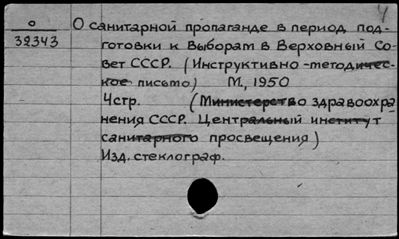 4
О санитарной пропаганде в период под-
готовки к выборам в Верховный Со-
вет СССР. (Инструктивно-методичес-
кое письмо) М., 1950
4стр. (Министерство здравоохра
нения СССР. Центральный институт
санитарного просвещения)
Изд. стеклограф.
о
32343